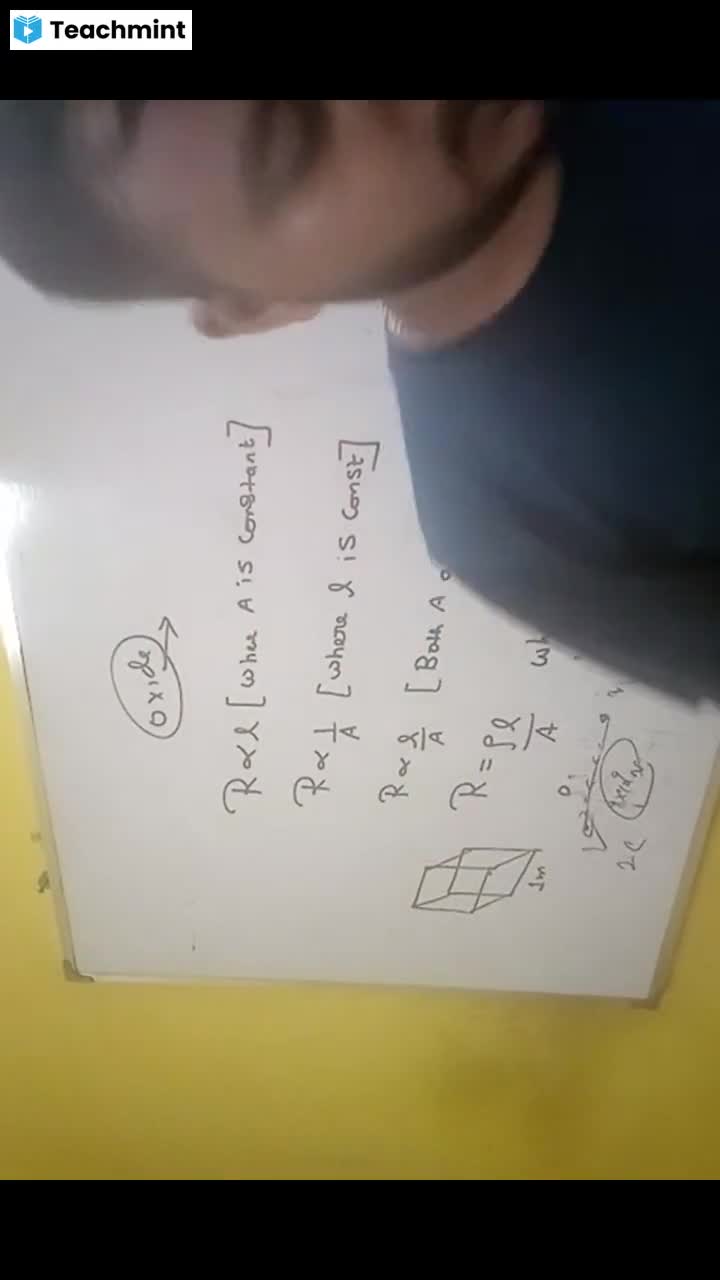 Teachmint
Oxide
R ∝ l [Where A is constant]
R ∝ 1/A [where l is const]
R ∝ l/A [Both A
R = ρl/A
1m